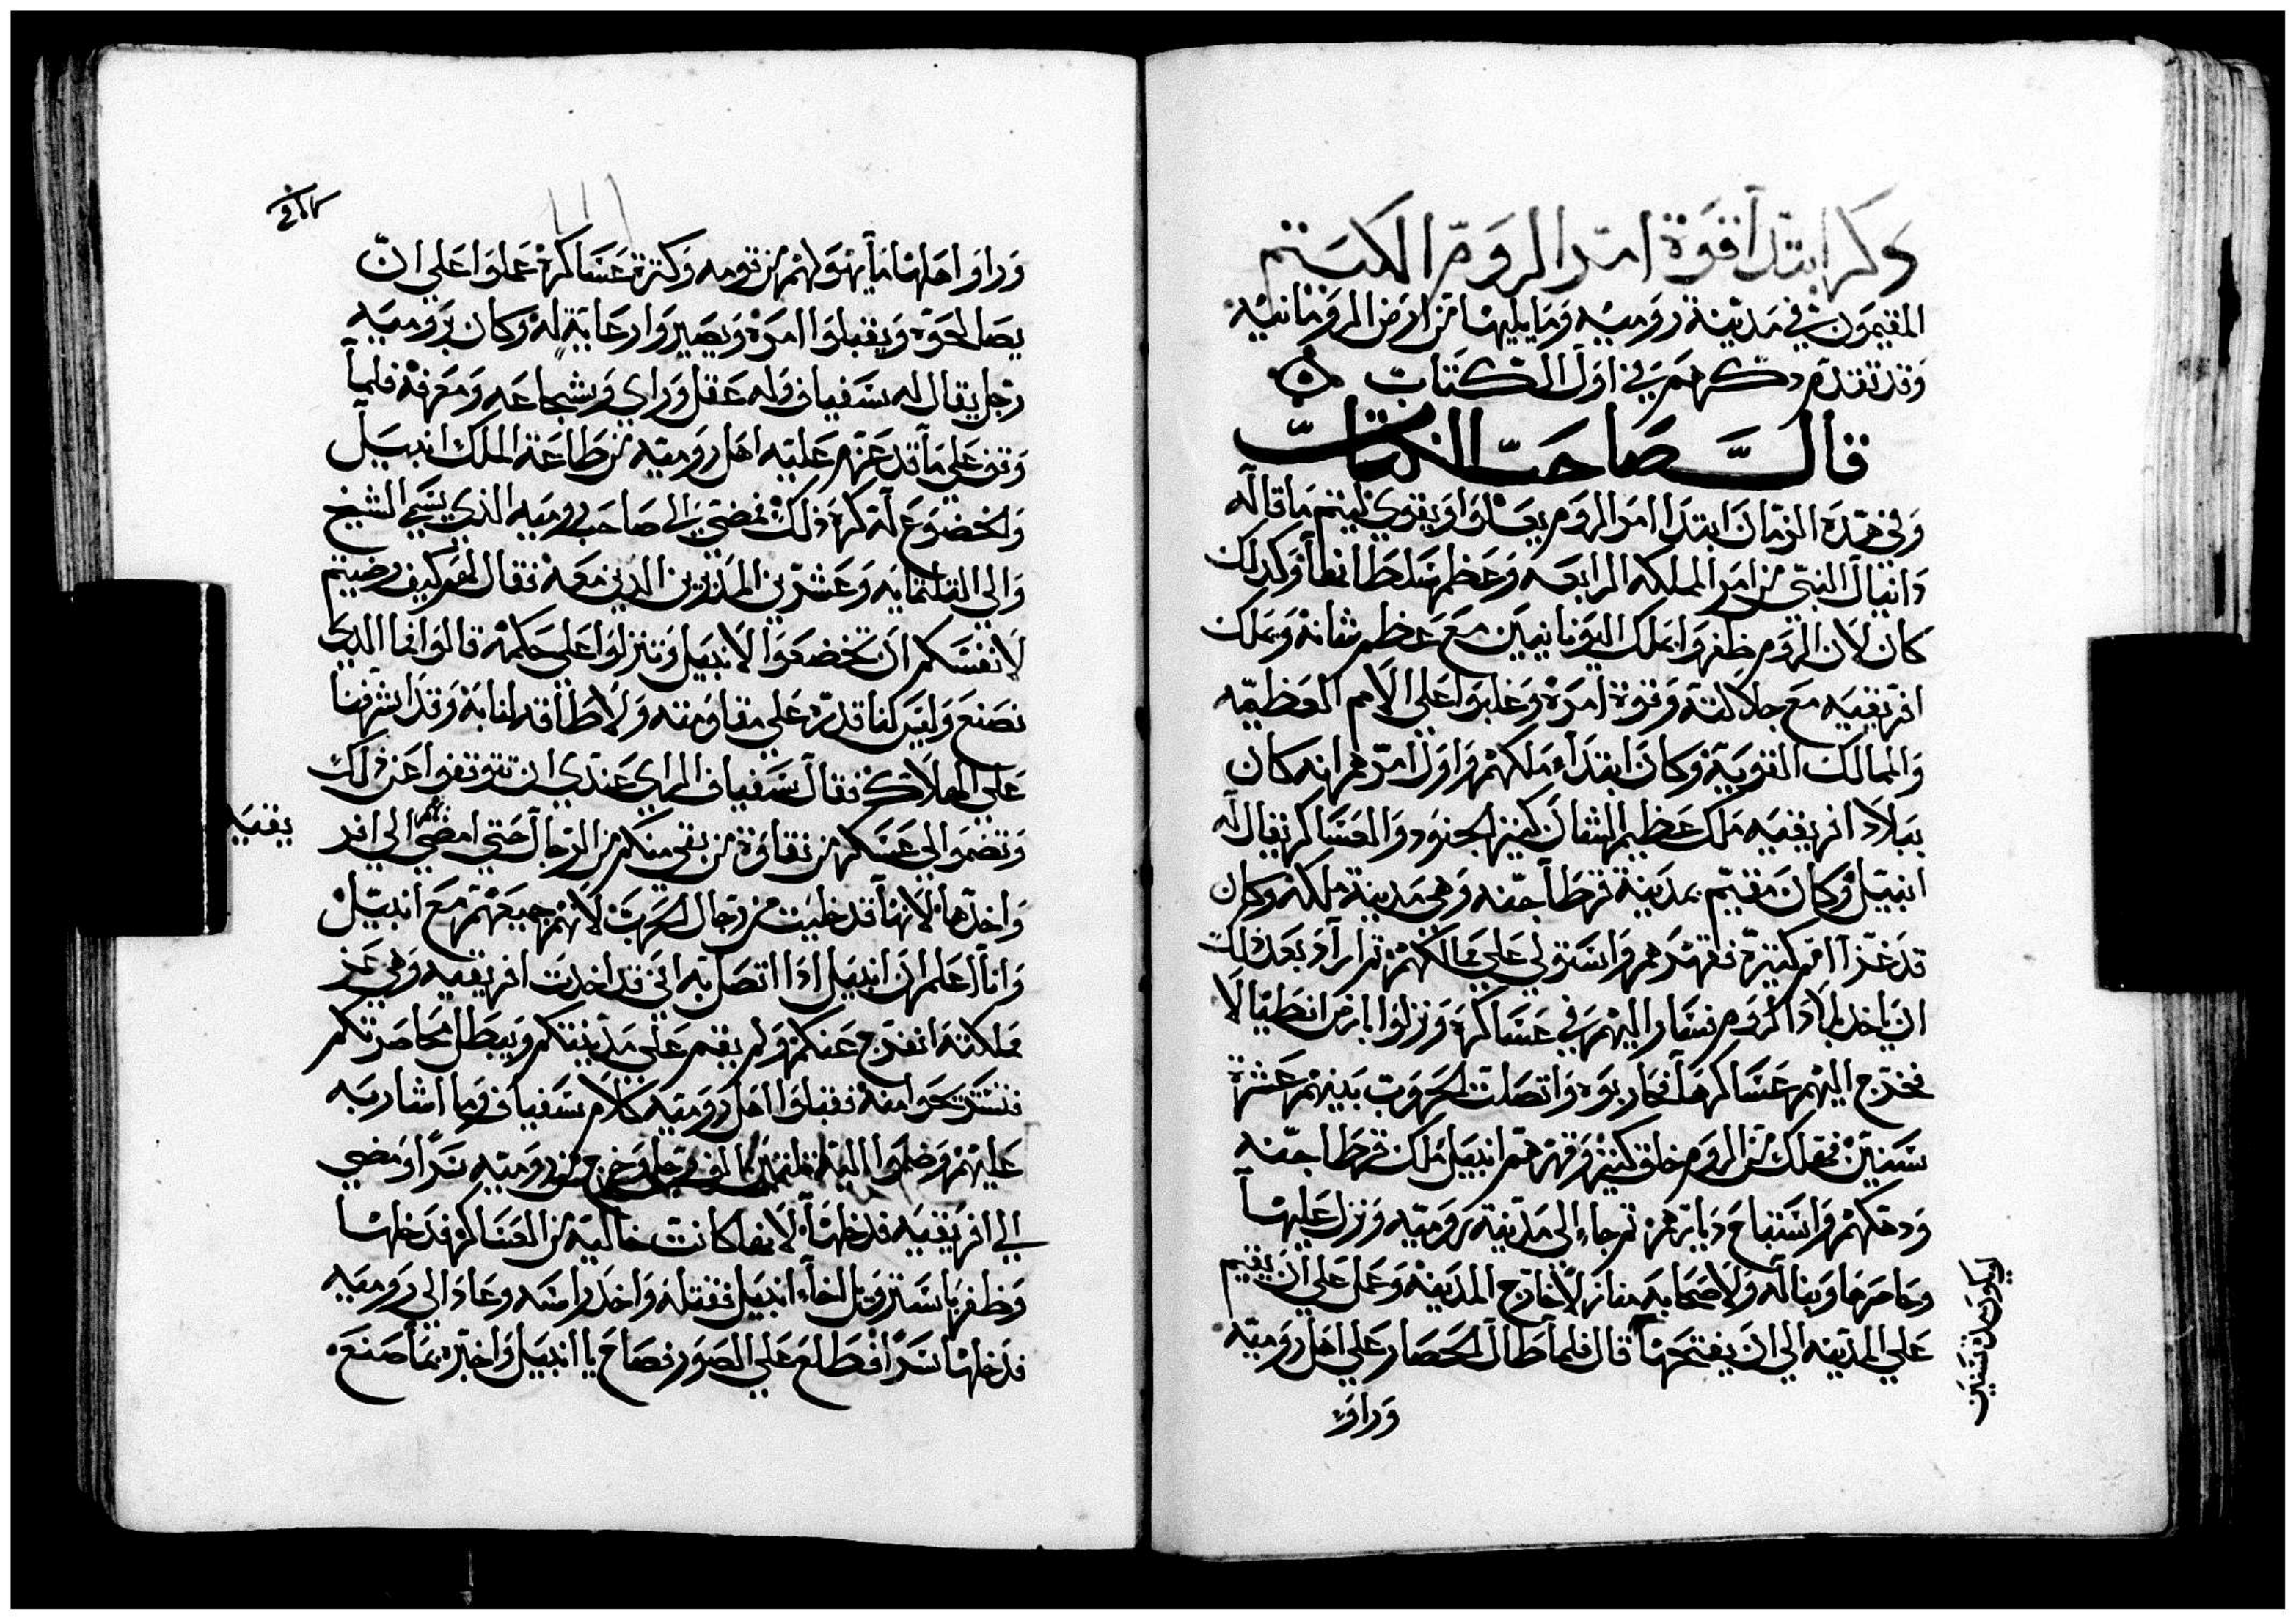 ذكر ابتدا قوة امر الروم الكيتم
المقيمون في مدينة رومية وما يليها من ارض الرومانيه
وقد تقدم ذكرهم في اول الكتاب
قال صاحب الكتاب
وفي هذه الزمان ابتدا امر الروم يعلوا ويقوي ليتم ما قاله
دانيال النبي من امر المملكه الرابعه وعظم سلطانها وكدلك
كان لان الروم ظفروا بملك اليونانيين مع عظم شانه وبملك
افريقيه مع جلالته وقوة امره وغلبوا علي الامم العظيمه
والممالك القوية وكان ابتداء ملكهم واول امرهم انه كان
ببلاد افريقيه ملك عظيم الشان كثير الجنود والعساكر يقال له
انبيل وكان مقيم بمدينة قرطاجنه وهي مدينة ملكه وكان
قد غزا امم كثيرة فقهرهم واستولي علي ممالكهم تم اراد بعد ذلك
ان ياخد بلاد الروم فسار اليهم في عساكره ونزلوا بارض انطيالا
فخرج اليهم عساكرها فحاربوه واتصلت الحروب بينهم عشرة
سنين فهلك من الروم خلق كثير وقهرهم انبيل ملك قرطاجنه
ودهكهم واستباح ديارهم تم جاء الي مدينة رومية ونزل عليها
وحاصرها وبنا له ولاصحابه منازل لاخارج المدينه وعمل علي ان يقيم
علي المدينه الي ان يفتحها قال فلما طال الحصار علي اهل رومية
وراو
وراو اهلها ما يهولهم من قومه وكترة عساكره عملوا علي ان
يصالحوه ويقبلوا امره ويصيروا رعاية له وكان برومية
رجل يقال له سفياف وله عقل وراي وشجاعه ومعرفة فلما
وقف علي ما قد عزم عليه اهل رومية من طاعة الملك انبيل
والخضوع له كره ذلك فمضي الي صاحب رومية الذي يسمي الشيخ
والي التلتمايه وعشرين المدبرين الدين معه فقال لهم كيف رضيتم
لانفسكم ان تخضعوا لانبيل وتنزلوا علي حكمه قالوا فما الدي
نصنع وليس لنا قدرة علي مقاومته ولا طاقه لنا به وقد اشرفنا
علي الهلاك فقال سفياف الراي عندي ان تتوقفوا عن ذلك
وتضموا الي عسكر من نقاوة من بقي منكم من الرجال حتي امضي الي افر
يقيه
واخدها لانها قد خليت من رجال الحرب لانهم جميعهم مع انبيل
وانا اعلم ان انبيل ادا اتصل به اني قد اخدت افريقيه وهي عز
مملكته انفرج عنكم ولم يقم علي مدينتكم ويبطل محاصرتكم
فتستريحوا منه فقبلوا اهل رومية كلام سفياف وما اشار به
عليهم وضموا اليه تلتين الف رجل وخرج من رومية سرا ومضي
الي افريقيه فدخلها لانها كانت خالية من العساكر فدخلها
وظفر باستروبل اخا انبيل فقتله واخد راسه وعاد الي رومية
فدخلها سرا فطلع علي الصور فصاح يا انبيل واخبره بما صنع